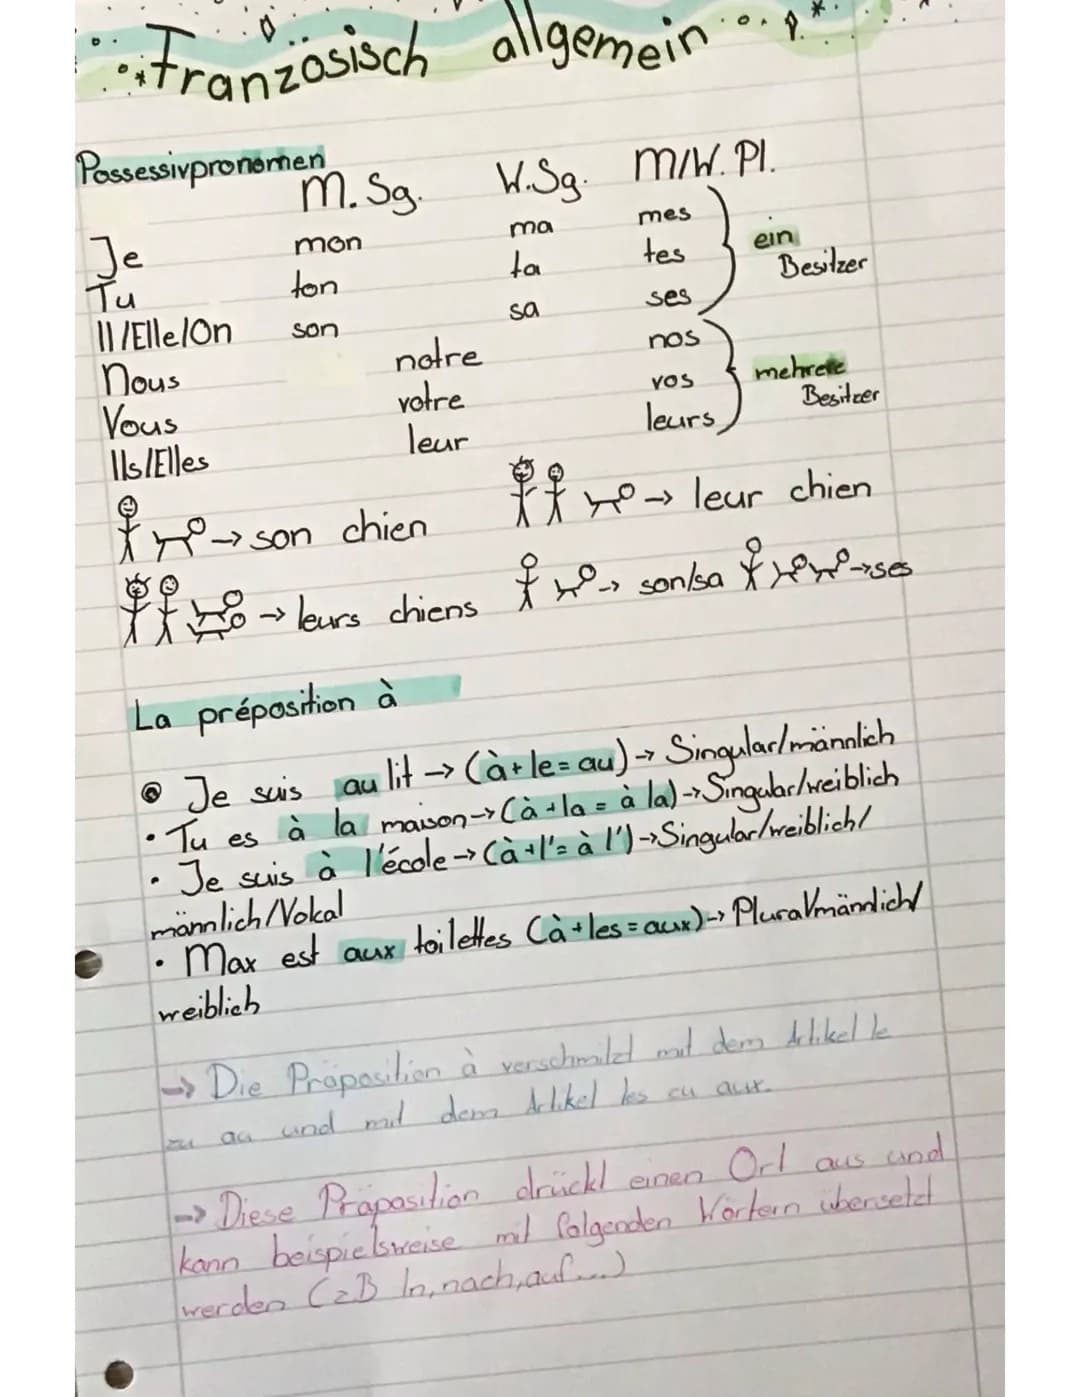 Französisch allgemein
Possessivpronomen
M. Sg. W.Sg. M/W. Pl.
Je mon ma mes
Tu ton ta tes
Il/Elle/On son sa ses
ein Besitzer
Nous notre nos
Vous votre vos
Ils/Elles leur leurs
mehrere Besitzer
→ son chien → leur chien
→ leurs chiens → son/sa → ses
La préposition à
• Je suis au lit → (à+le=au) → Singular/männlich
• Tu es à la maison → (à+la = à la) → Singular/weiblich
• Je suis à l'école → (à+l'= à l') → Singular/weiblich/
männlich/Vokal
• Max est aux toilettes (à+les=aux) → Plural/männlich/
weiblich
→ Die Präposition à verschmilzt mit dem Artikel le
zu au und mit dem Artikel les zu aux.
→ Diese Präposition drückt einen Ort aus und
kann beispielsweise mit folgenden Wörtern übersetzt
werden (zB In, nach, auf...)